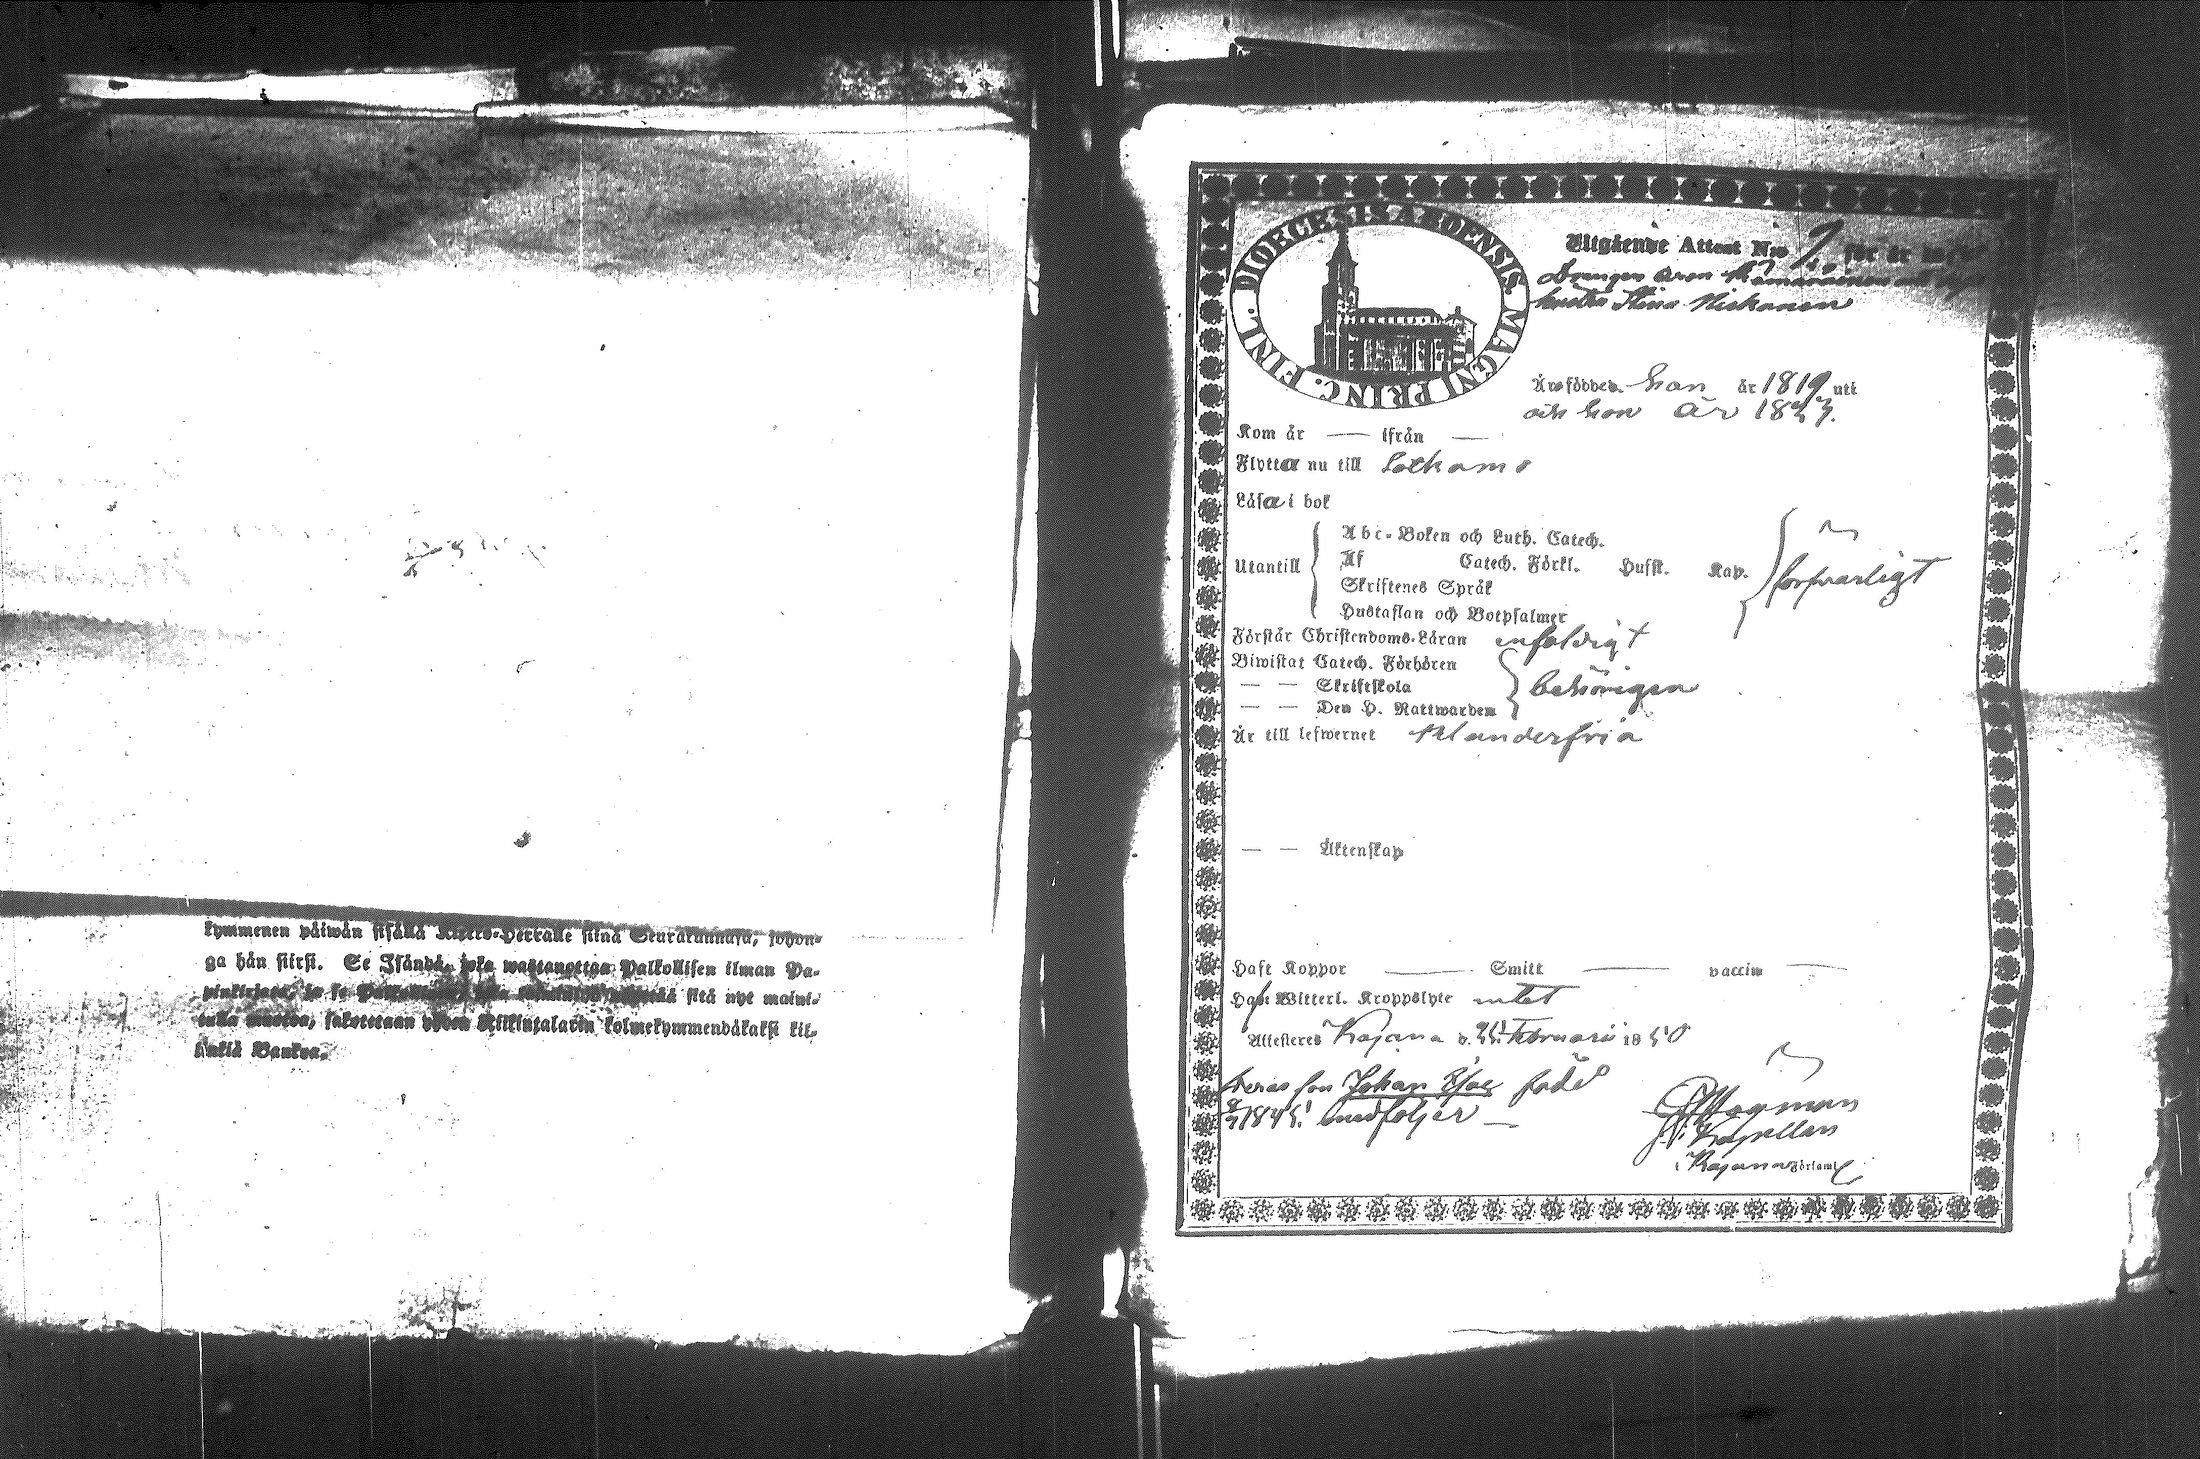 kymmenen päiwän sisällä Kirkko-Herralle siinä Seurakunnasa, johon-
ga hän siirsi. Se Isändä, joka wastanottaa Palkollisen ilman Pa-
pinkirjata, ja se sitä nyt maini-
tulla muotoa, sakotetaan yhden Riikintalarin kolmekymmendäkaksi kil-
linkiä Bankoa.
DIOECESIS ABOENSIS. MAGNI PRINC. FINL.
Utgående Attest N:o 9. för år
Drängen Aron Kämäräinen
hustru Stina Niskanen
Är född han år 1819 uti
och hon år 1827.
Kom år — ifrån —
Flytta nu till Sotkamo
Läsa i bok
Utantill
Abc-Boken och Luth. Catech.
Af Catech. Förkl. Hufst. Kap.
Skriftenes Språk
Hustaflan och Botpsalmer
försvarligt
Förstår Christendoms-Läran enfaldigt
Biwistat Catech. Förhören
— — Skriftskola
— — Den H. Nattwarden
behörigen
Är till lefwernet klanderfria
— — Äktenskap
Haft Koppor — Smitt — vaccin —
Haf Witterl. Kroppslyte intet
Attesteres Kajana d. Februarii 1850
deras son Johan född
medföljer —
Wagman
Kapellan
i Kajana Församl